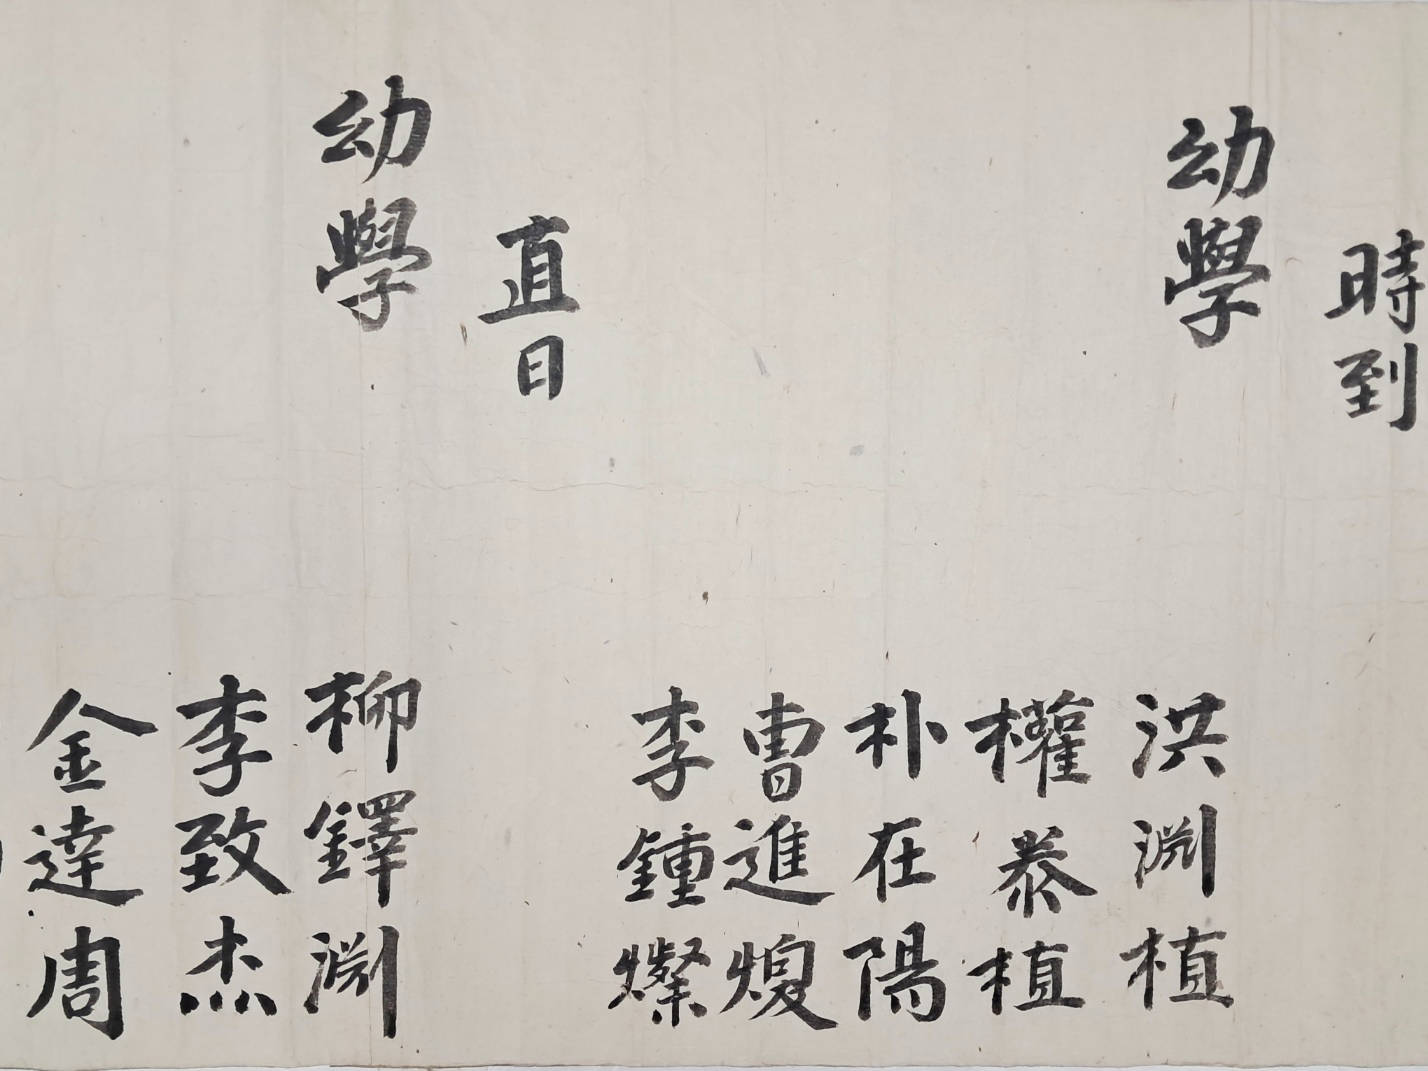 時到
幼學 洪淵植
權泰植
朴在陽
曺進煥
李鍾燦
直日
幼學 柳鐸淵
李致杰
金達周